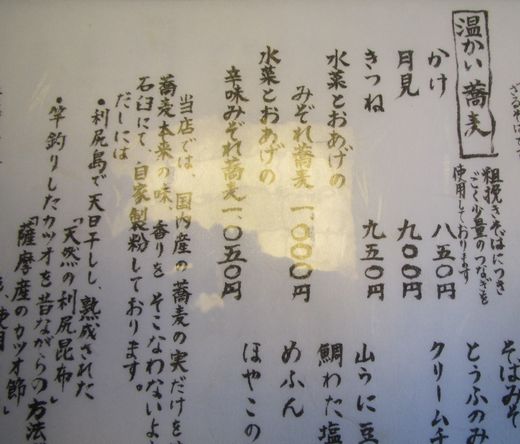 ざるそば
温かい蕎麦
粗挽きそばにつき
ごく少量のつなぎを
使用しております
かけ 八五〇円
月見 九〇〇円
きつね 九五〇円
水菜とおあげの
みぞれ蕎麦 一、〇〇〇円
水菜とおあげの
辛味みぞれ蕎麦 一、〇五〇円
そばみそ
とうふのみ
クリームチ
山うに豆
鯛わた塩
めふん
ほやこの
当店では、国内産の蕎麦の実だけを
蕎麦本来の味、香りをそこなわないよ
石臼にて、自家製粉しております。
だしには
・利尻島で天日干しし、熟成された
「天然の利尻昆布」
・竿釣りしたカツオを昔ながらの方法
「薩摩産のカツオ節」